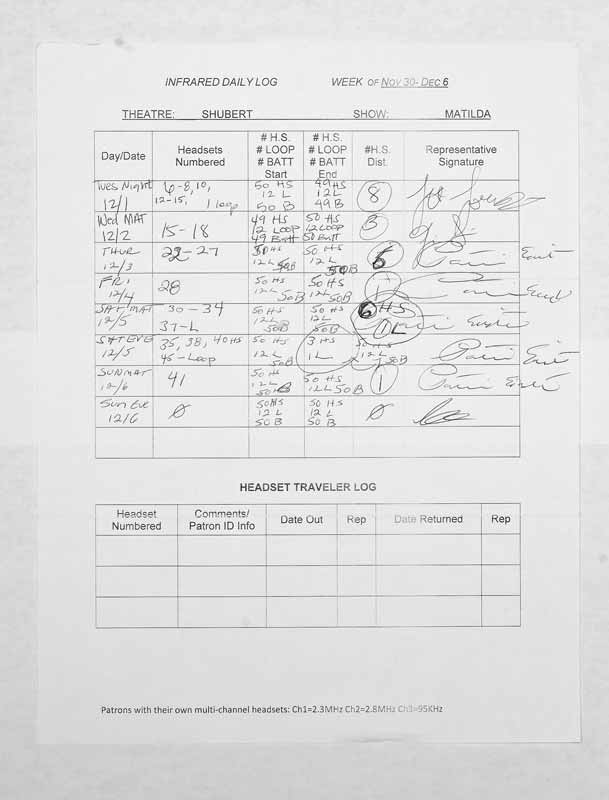 INFRARED DAILY LOG WEEK OF NOV 30- DEC 6
THEATRE: SHUBERT SHOW: MATILDA
Day/Date
Headsets
Numbered
# H.S.
# LOOP
# BATT
Start
# H.S.
# LOOP
# BATT
End
#H.S.
Dist.
Representative
Signature
Tues Night
12/1
6-8, 10,
12-15, 1 loop
50 HS
12 L
50 B
49 HS
12 L
49 B
8
Wed MAT
12/2
15-18
49 HS
12 LOOP
49 Batt
50 HS
12 LOOP
50 Batt
3
THUR
12/3
22-27
50 HS
12 L 50B
50 HS
12 L 50B
6
FRI
12/4
28
50 HS
12 L 50B
50 HS
12 L 50B
1
SAT MAT
12/5
30-34
37-L
50 HS
12 L
50B
50 HS
12 L
50B
6 HS
1 L
SAT EVE
12/5
35, 38, 40 HS
45-Loop
50 HS
12 L
50B
3 HS
1 L
50 HS
12 L
50B
SUN MAT
12/6
41
50 HS
12 L
50 B
50 HS
12 L 50B
1
Sun Eve
12/6
Ø
50 HS
12 L
50 B
50 HS
12 L
50 B
Ø
HEADSET TRAVELER LOG
Headset
Numbered
Comments/
Patron ID Info
Date Out
Rep
Date Returned
Rep
Patrons with their own multi-channel headsets: Ch1=2.3MHz Ch2=2.8MHz Ch3=95KHz